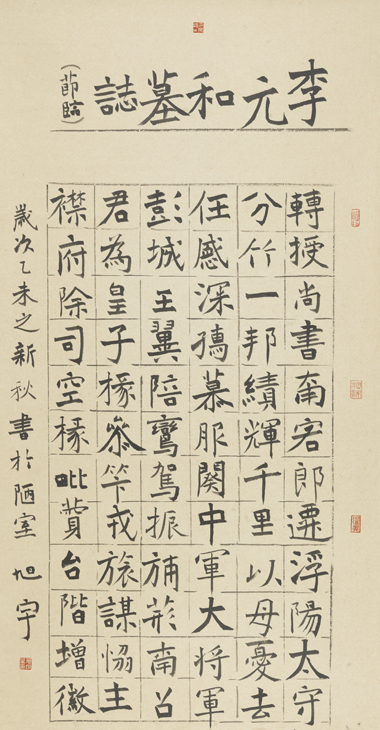 李元和墓誌
(節臨)
轉授尚書南宕郎遷浮陽太守
分竹一邦績輝千里以母憂去
任感深孺慕服闋中軍大將軍
彭城王翼陪鸞駕振斾荊南召
君為皇子掾叅笇戎旅謀恊主
襟府除司空掾毗贊台階增徽
歲次乙未之新秋書於陋室 旭宇